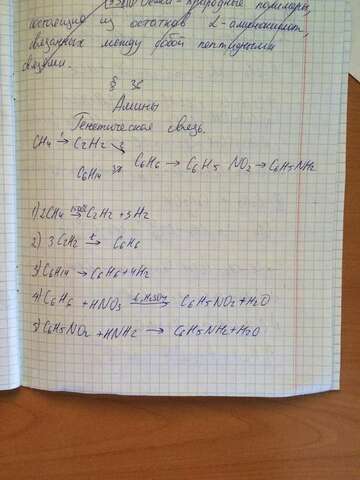 Белки - природные полимеры,
состоящие из остатков α-аминокислот,
связанных между собой пептидными
связями.
§ 36
Амины
Генетическая связь.
CH4 →1 C2H2 ↘2
C6H14 →3 C6H6 → C6H5 NO2 → C6H5NH2
1) 2CH4 →1500° C2H2 + 3H2
2) 3C2H2 →t C6H6
3) C6H14 → C6H6 + 4H2
4) C6H6 + HNO3 →t, H2SO4 C6H5NO2 + H2O
5) C6H5NO2 + HNH2 → C6H5NH2 + H2O